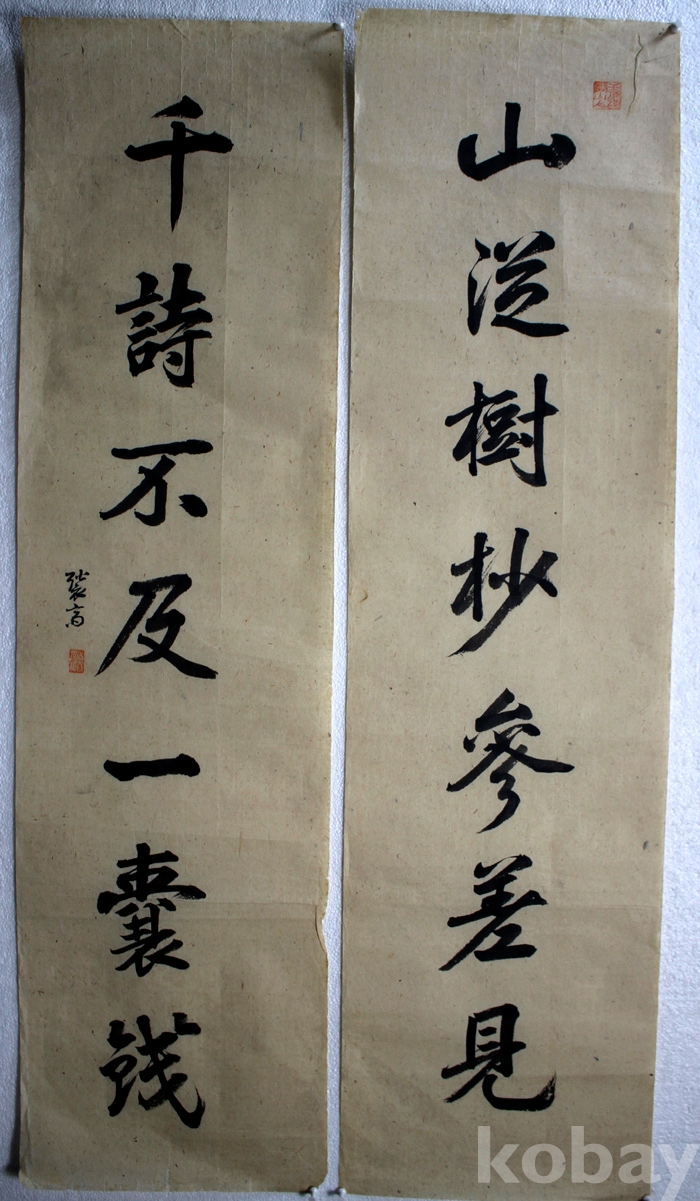 山從樹杪參差見
千詩不及一囊錢
裴高
kobay